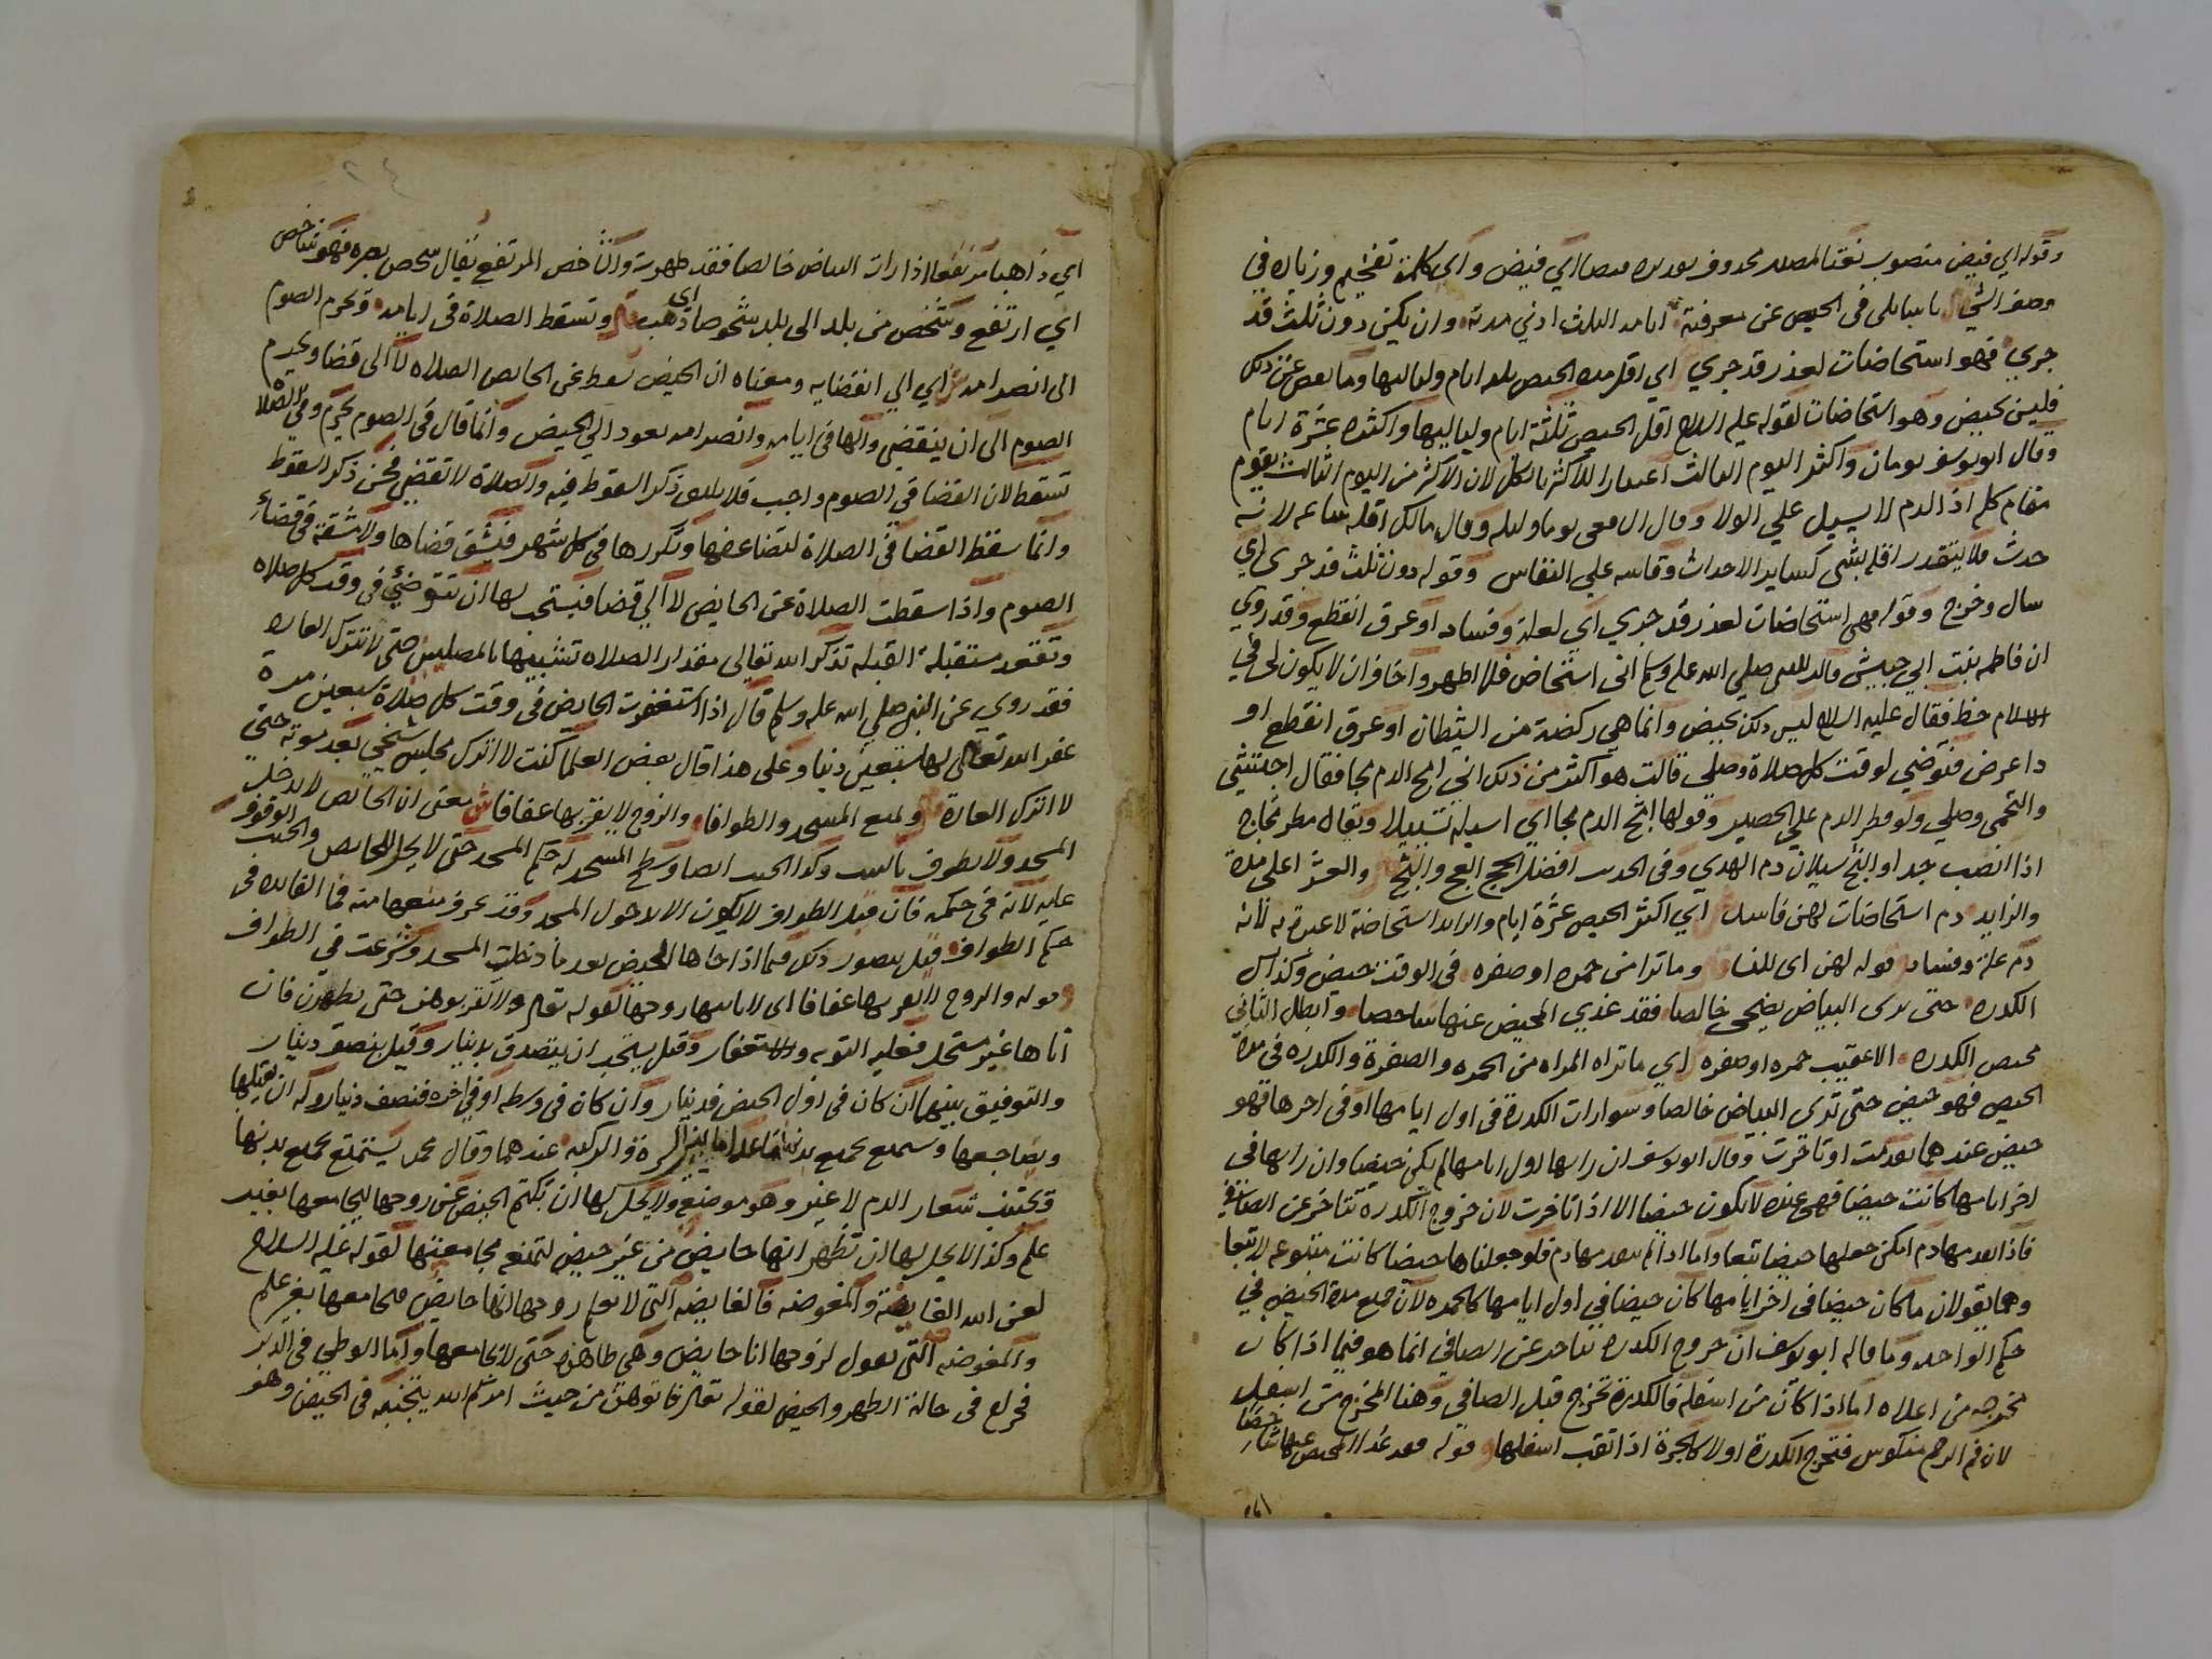 وقوله اي فيض منصوب نعتا لمصدر محذوف تقديره فيضا اي فيض واي كلمة تفخيم وزياده في
وصف الشي يا سايلى فى الحيض عن معرفته ايامه الثلث ادني مدته وان يكن دون ثلث قد
جري فهو استحاضات لعذر قد جري اي اقل مده الحيض ثلثه ايام ولياليها وما نقص عن ذلك
فليس بحيض وهو استحاضات لقوله عليه السلام اقل الحيض ثلثة ايام ولياليها واكثره عشرة ايام
وقال ابو يوسف يومان واكثر اليوم الثالث اعتبارا للاكثر بالكل لان الاكثر من اليوم الثالث يقوم
مقام كله اذ الدم لا يسيل علي الولا وقال الشافعى يوما وليله وقال مالك اقله ساعه لانه
حدث فلا يتقدر اقله بشى كساير الاحداث وقاسه علي النفاس وقوله دون ثلث قد جرى اي
سال وخرج وقوله فهى استحاضات لعذر قد جري اي لعلة وفساد او عرق انقطع وقد روي
ان فاطمه بنت ابي حبيش قالت للنبى صلي الله عليه وسلم انى استحاض فلا اطهر واخاف ان لا يكون لي في
الاسلام حظ فقال عليه السلام ليس ذلك بحيض وانما هي ركضة من الشيطان او عرق انقطع او
دا عرض فتوضي لوقت كل صلاة وصلي قالت هو اكثر من ذلك اني اثج الدم ثجا فقال احتشي
والتجمى وصلي ولو قطر الدم علي الحصير وقولها اثج الدم ثجا اي اسيله تسييلا ويقال مطر ثجاج
اذا انصب جدا والثج سيلان دم الهدي وفى الحديث افضل الحج العج والثج والعشر اعلى مدة
والزايد دم استحاضات لهن فاسد اي اكثر الحيض عشرة ايام والزايد استحاضة لا عبرة به لانه
دم علة وفساد قوله لهن اى للنسا وما ترا من حمره او صفره في الوقت حيض وكذا بل
الكدره حتى ترى البياض يضحى خالصا فقد غدي المحيض عنها شاخصا وابطل الثاني
محيض الكدره الا عقيب حمره او صفره اي ما تراه المراه من الحمره والصفرة والكدره في مدة
الحيض فهو حيض حتى تري البياض خالصا وسوا رات الكدرة في اول ايامها او فى اخرها فهو
حيض عندهما تقدمت او تاخرت وقال ابو يوسف ان راتها اول ايامها لم يكن حيضا وان راتها في
اخر ايامها كانت حيضا فهى عنده لا يكون حيضا الا اذا تاخرت لان خروج الكدره تتاخر عن الصافي
فاذا تقدمها دم امكن جعلها حيضا تبعا واما اذا لم يتقدمها دم فلو جعلناها حيضا كانت متبوعه لا تبعا
وهما يقولان ما كان حيضا فى اخر ايامها كان حيضا في اول ايامها كالحمره لان جميع مدة الحيض في
حكم الواحد وما قاله ابو يوسف ان خروج الكدره يتاخر عن الصافي انما هو فيما اذا كان
مخرجه من اعلاه اما اذا كان من اسفله فالكدرة تخرج قبل الصافي وهنا المخرج من اسفل
لان فم الرحم منكوس فتخرج الكدرة اولا كالجرة اذا ثقب اسفلها وقوله فقد غدا المحيض عنها شاخصا
اي ذاهبا مرتفعا اذا رات البياض خالصا فقد طهرت والشاخص المرتفع يقال شخص بصره فهو شاخص
اي ارتفع وشخص من بلد الى بلد شخوصا اى ذهب وتسقط الصلاة فى ايامه ويحرم الصوم
الى انصرامه اي الي انقضايه ومعناه ان الحيض يسقط عن الحايض الصلاه لا الى قضا ويحرم
الصوم الى ان ينقضي والها فى ايامه وانصرامه يعود الي الحيض وانما قال فى الصوم يحرم وفي الصلاة
تسقط لان القضا في الصوم واجب فلا يليق ذكر السقوط فيه والصلاة لا تقضى فحسن ذكر السقوط
وانما سقط القضا في الصلاة لتضاعفها وتكررها فى كل شهر فيشق قضاها ولا مشقة في قضاء
الصوم واذا سقطت الصلاة عن الحايض لا الي قضا فيستحب لها ان تتوضئ فى وقت كل صلاه
وتقعد مستقبلة القبله تذكر الله تعالى مقدار الصلاه تشبيها بالمصلين حتى لا تترك العاده
فقد روي عن النبي صلي الله عليه وسلم قال اذا استغفرت الحايض فى وقت كل صلاة سبعين مرة
غفر الله تعالى لها سبعين ذنبا وعلى هذا قال بعض العلما كنت لا اترك مجلس شيخى بعد موته حتى
لا اترك العادة ويمنع المسجد والطوافا والزوج لا يقربها عفافا ش يعنى ان الحايض لا تدخل
المسجد ولا تطوف بالبيت وكذا الجنب ايضا وسطح المسجد له حكم المسجد حتى لا يحل للحايض والجنب الوقوف
عليه لانه في حكمه فان قيل الطواف لا يكون الا بدخول المسجد وقد عرف منعهما منه فما الفايده فى
حكم الطواف قيل يتصور ذلك فيما اذا جاها المحيض بعد ما دخلت المسجد وشرعت في الطواف
وقوله والزوج لا يقربها عفافا اى لا ياتيها زوجها لقوله تعالى ولا تقربوهن حتى يطهرن فان
اتاها غير مستحل فعليه التوبه والاستغفار وقيل يستحب ان يتصدق بدينار وقيل بنصف دينار
والتوفيق بينهما ان كان في اول الحيض فدينار وان كان فى وسطه او في اخره فنصف دينار وله ان يقبلها
ويضاجعها ويستمتع بجميع بدنها ما عدا ما بين السرة والركبه عندهما وقال محمد يستمتع بجميع بدنها
ويجتنب شعار الدم لا غير وهو موضعه ولا يحل لها ان تكتم الحيض عن زوجها ليجامعها بغير
علم وكذا لا يحل لها ان تظهر انها حايض من غير حيض لتمنعه مجامعتها لقوله عليه السلام
لعن الله الغايضة والمغوضه فالغايضه التى لا تعلم زوجها انها حايض فيجامعها بغير علم
والمغوضه التى تقول لزوجها انا حايض وهى طاهره حتى لا يجامعها واما الوطي فى الدبر
فحرام فى حالة الطهر والحيض لقوله تعالى فاتوهن من حيث امركم الله بتجنبه فى الحيض وهو